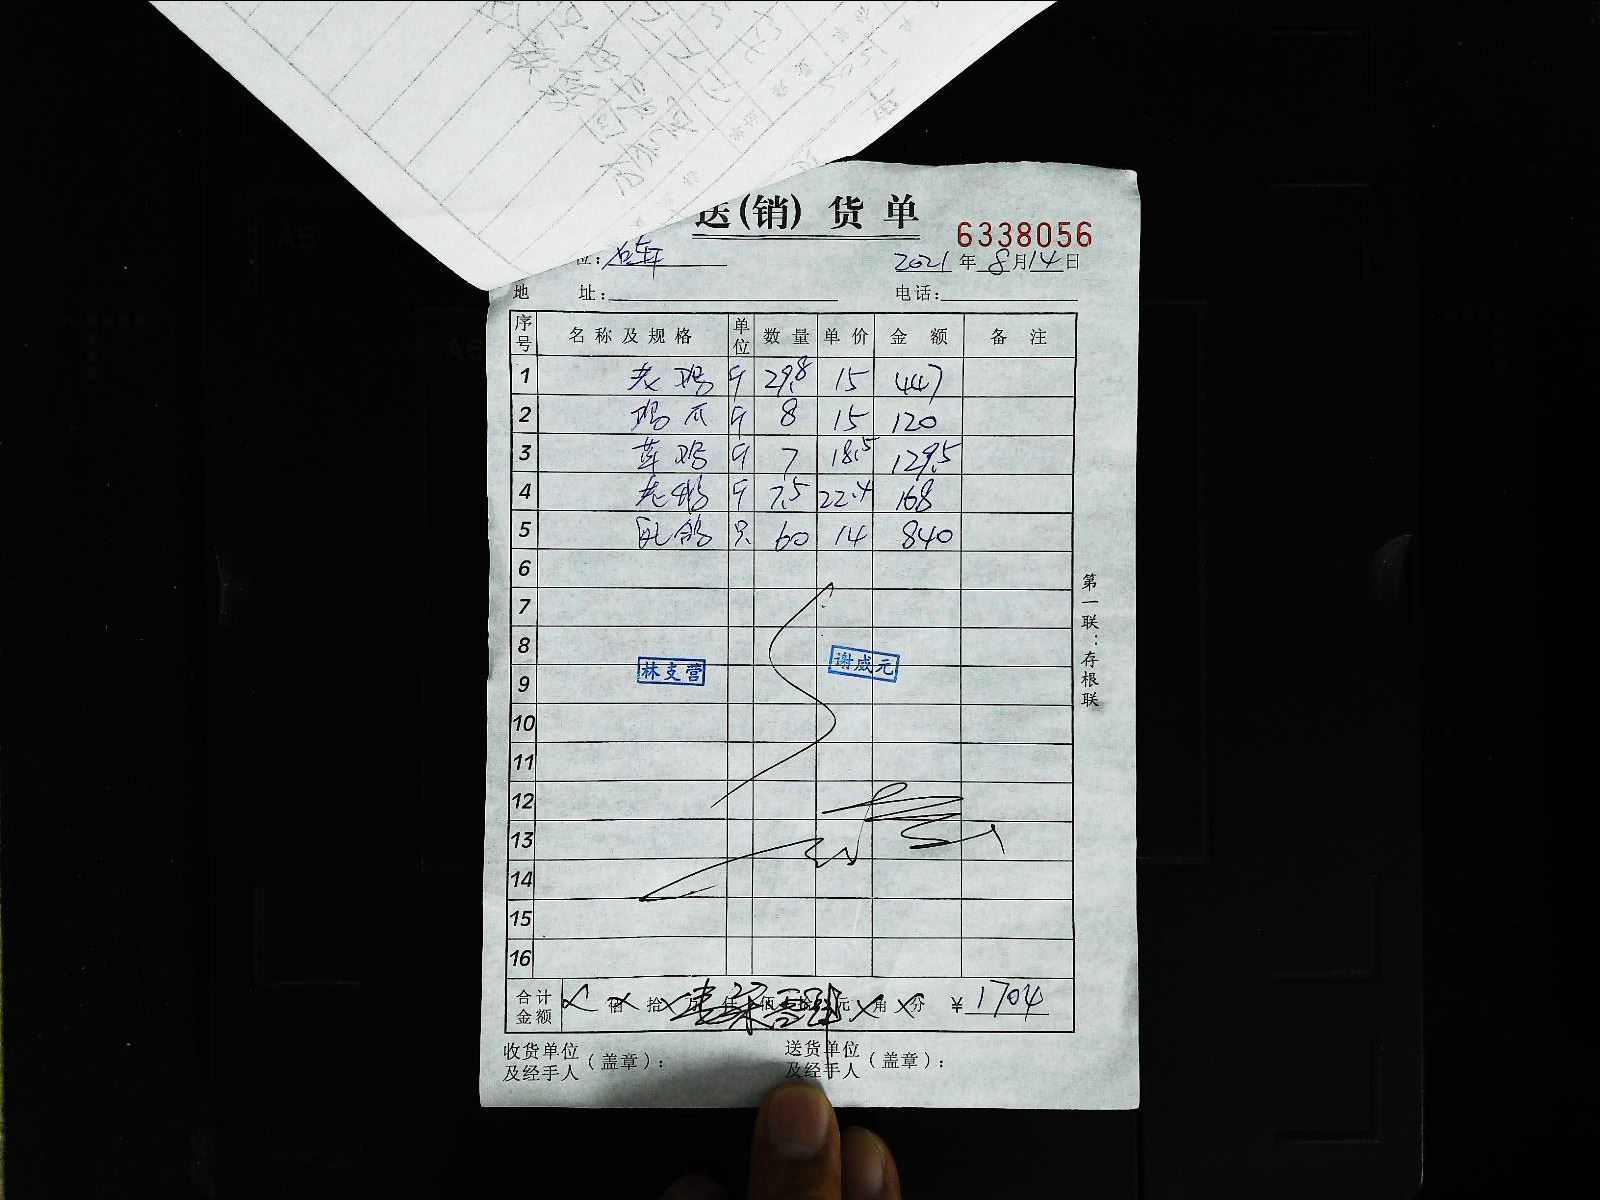 送(销)货单
6338056
位:
2021年8月14日
地 址: 电话:
序号 名称及规格 单位 数量 单价 金额 备注
1 老鸡 斤 29.8 15 447
2 鸡爪 斤 8 15 120
3 草鸡 斤 7 18.5 129.5
4 老鸭 斤 7.5 22.4 168
5 乳鸽 只 60 14 840
6
7
8
林支营 谢威元
9
10
11
12
13
14
15
16
合计金额 佰 拾 万 仟 佰 拾 元 角 分 ¥1704
收货单位及经手人(盖章): 送货单位及经手人(盖章):
第一联:存根联